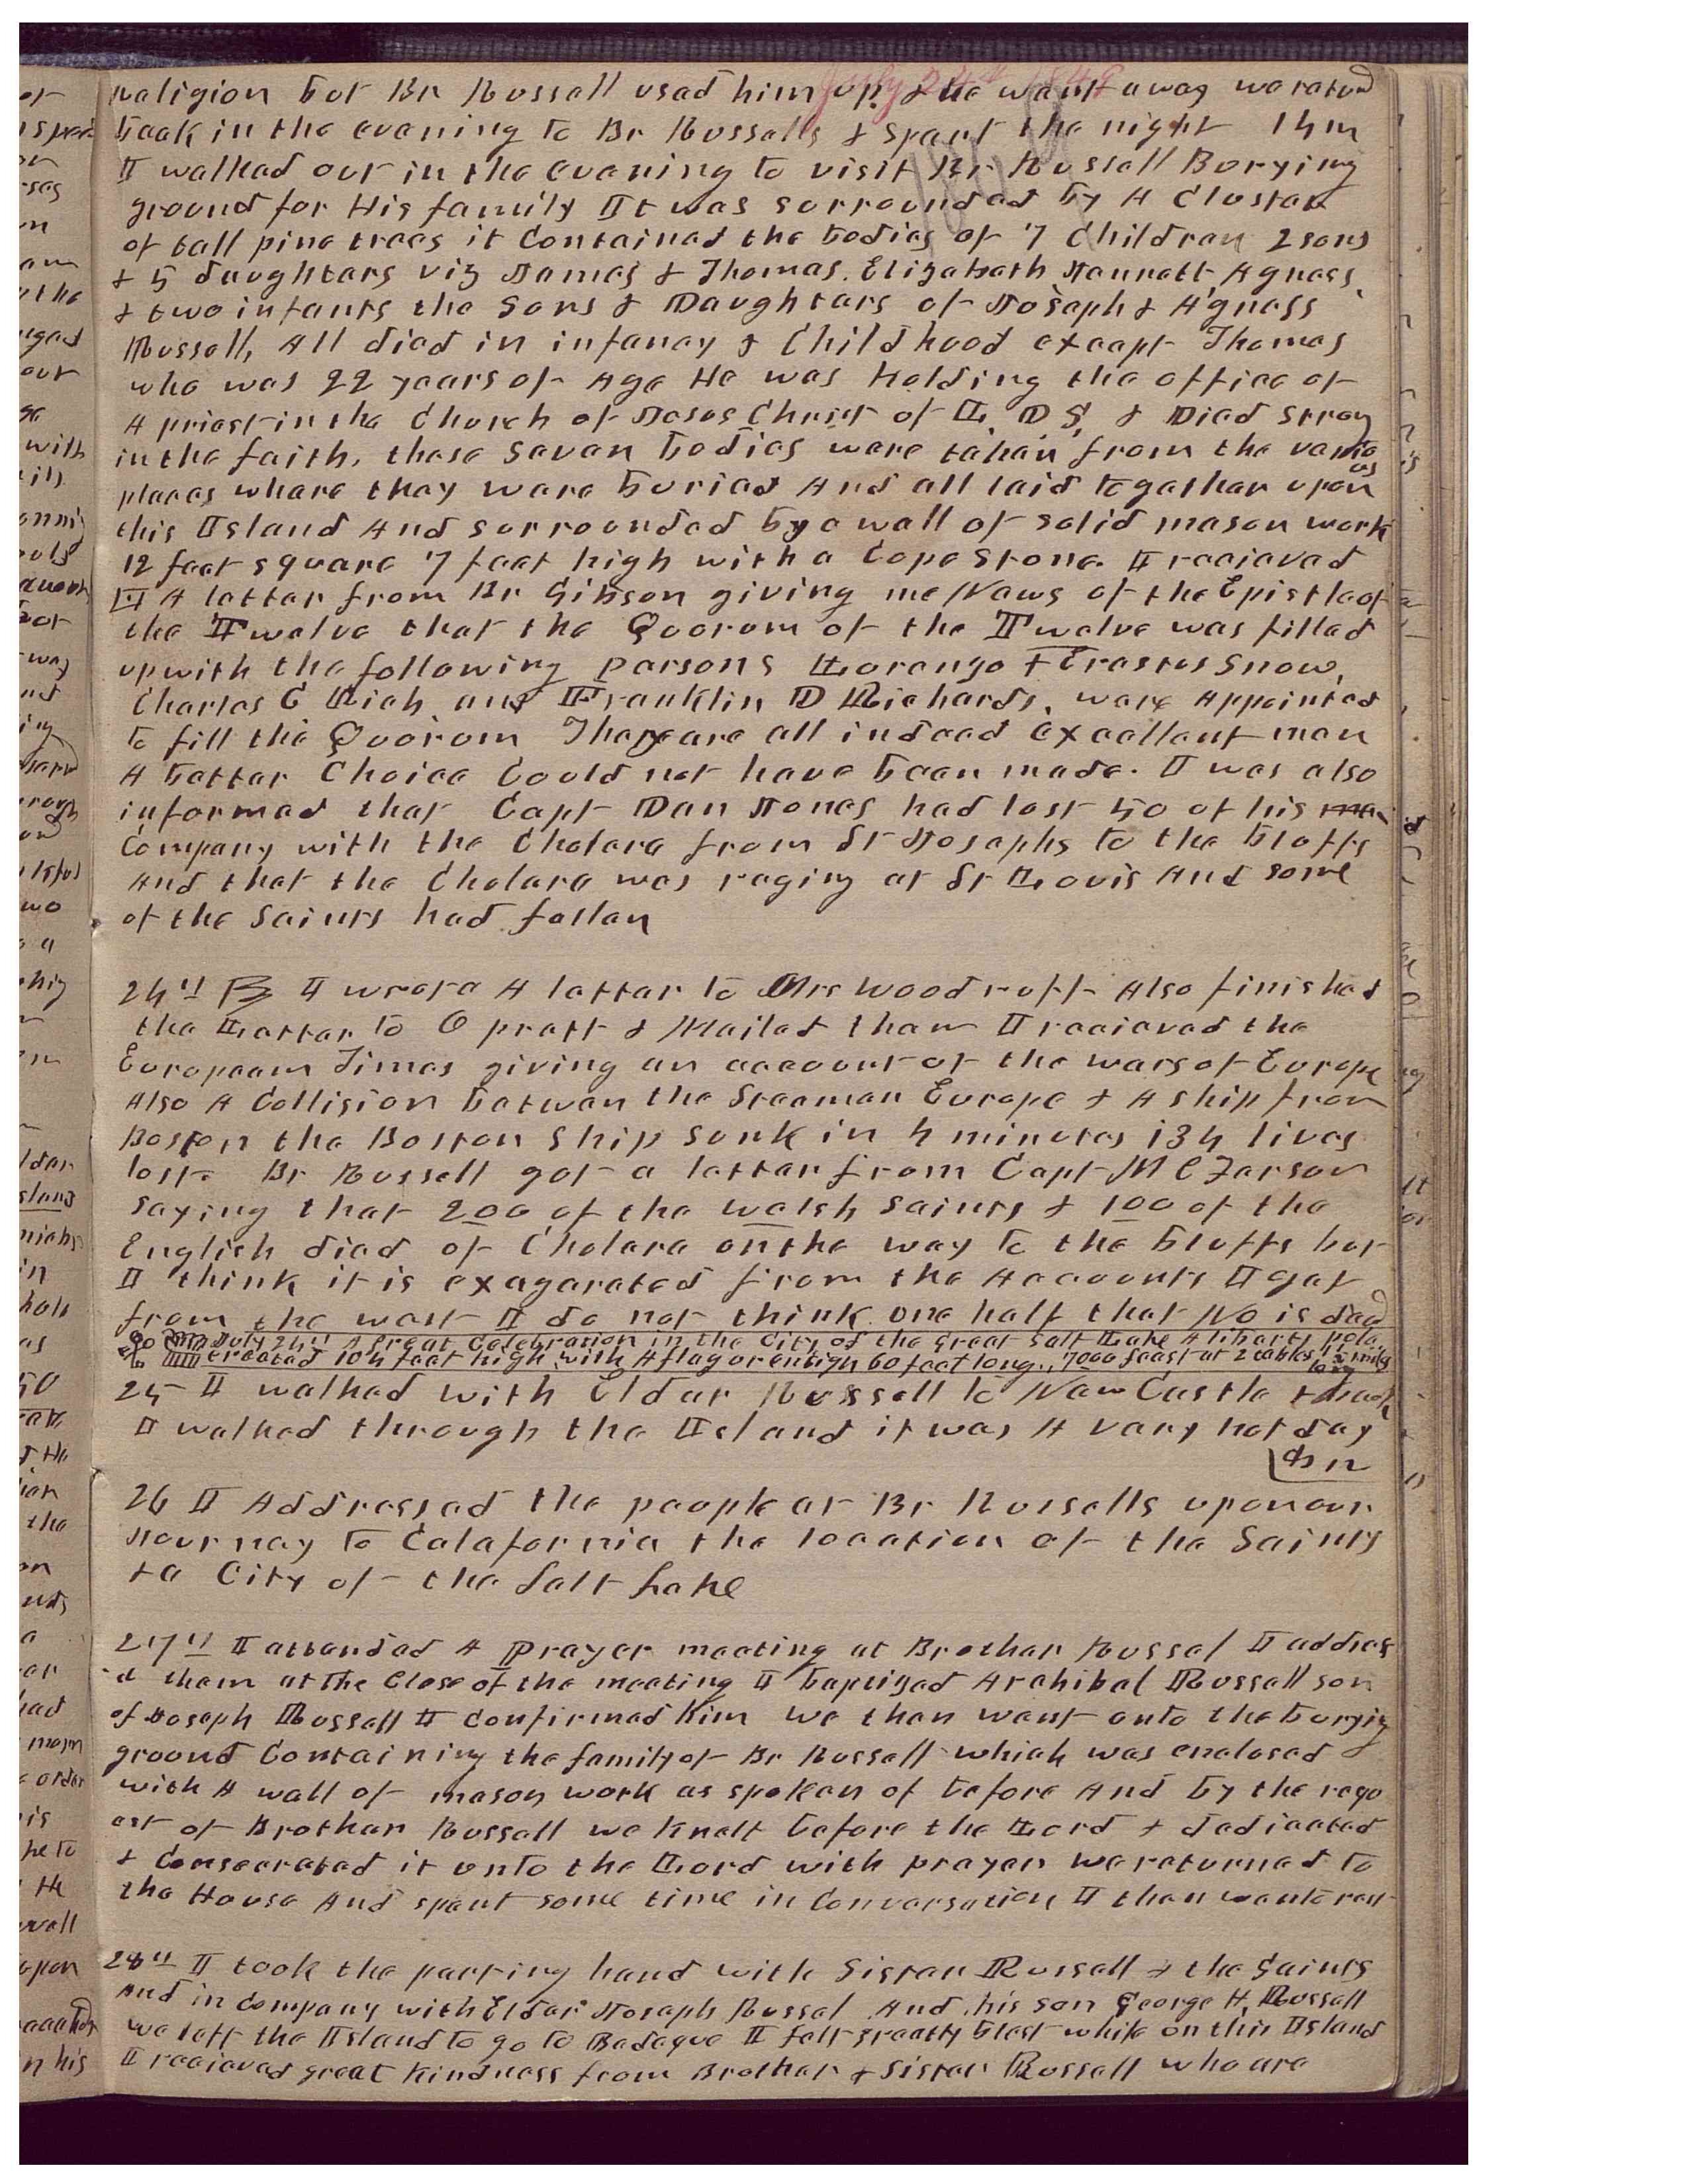 July 24th 1849
religion but Br Russell used him up. & he went away we returnd
back in the evening to Br Russells & spent the night 14 m
I walked out in the evening to visit Br Russell Burying
ground for His family It was surrounded by A Cluster
of tall pine trees it Contained the bodies of 7 Children 2 sons
& 5 daughters viz James & Thomas. Elizabeth Jannett, Agness,
& two infants the Sons & Daughters of Joseph & Agness
Russell, All died in infancy & Childhood except Thomas
who was 22 years of Age He was holding the office of
A priest in the Church of Jesus Christ of L. D S, & Died strog
in the faith, these Seven bodies were taken from the vario
us
places where they were buried And all laid together upon
this Island And surrounded by a wall of solid mason work
12 feet square 7 feet high with a Cope Stone. I received
A letter from Br Gibson giving me News of the Epistle of
the Twelve that the Quorum of the Twelve was filled
up with the following persons Lorenzo & Erastus Snow,
Charles C Rich and Franklin D Richards, were Appointed
to fill the Quorum They are all indeed excellent men
A better Choice Could not have been made. I was also
informed that Capt Dan Jones had lost 50 of his
Company with the Cholera from St Josephs to the bluffs
And that the Cholera was raging at St Louis And some
of the Saints had fallen
24th I wrote A letter to Mrs Woodruff Also finished
the Letter to O pratt & Mailed them I received the
Europeam Times giving an account of the wars of Europe
Also A Collision betwen the Steemer Europe & A ship from
Boston the Boston Ship sunk in 4 minutes 134 lives
lost. Br Russell got a letter from Capt
saying that 200 of the welsh Saints & 100 of the
English died of Cholera on the way to the bluffs but
I think it is exagarated from the Accounts I get
from the west I do not think one half that No is dead
July 24th A Great Celebration in the City of the Great Salt Lake A liberty pole
erected 104 feet high with A flag or ensign 60 feet long., 7000 feast at 2 tables 1/2 mile
long
25 I walked with Elder Russell to New Castle & back
I walked through the Island it was A very hot day
m
26 I Addressed the people at Br Russells upon our
Journey to Calafornia the location of the Saints
& a City of the Salt Lake
27th I attended A Prayer meeting at Brother Russel I addres
d them at the Close of the meeting I baptized Archibal Russell son
of Joseph Russell I confirmed him we then went onto the burying
ground Containing the family of Br Russell which was enclosed
with A wall of mason work as spoken of before And by the requ
est of Brother Russell we knelt before the Lord & dedicated
& Consecrated it unto the Lord with prayer we returned to
the House And spent some time in Conversation I then went to rest
28th I took the parting hand with Sister Russell & the Saints
And in Company with Elder Joseph Russel And his son George H, Russell
we left the Island to go to Bedeque I felt greatly blest while on this Island
I received great kindness from Brother & Sister Russell who are